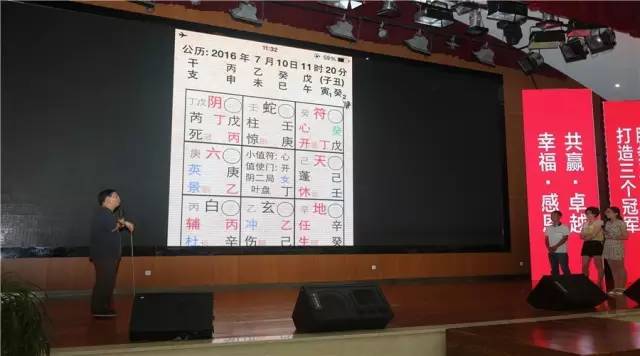 11:32
69%
公历:2016年7月10日11时20分
干 丙 乙 癸 戊 (子丑)
支 申 未 巳 午 寅1癸2
丁戊 阴 壬 蛇 癸 符
芮 丁戊 柱 壬 心 癸
死 丙 惊 庚 开 丁戊
庚 六 小值符:心 己 天
英 庚 值使门:开 蓬 己
景 乙 阴二局 女 休 壬
叶盘 丁
丙 白 乙 玄 辛 地
辅 丙 冲 乙 任 辛
杜 辛 伤 己 生 癸
共赢·卓越
幸福·感恩
打造三个冠军